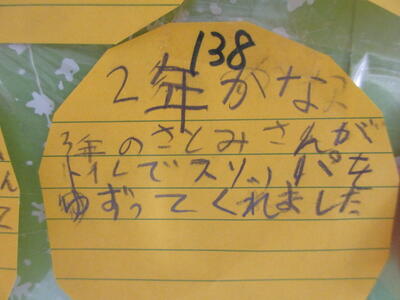 138
2年 かなえ
3年のさとみさんが
トイレでスリッパを
ゆずってくれました